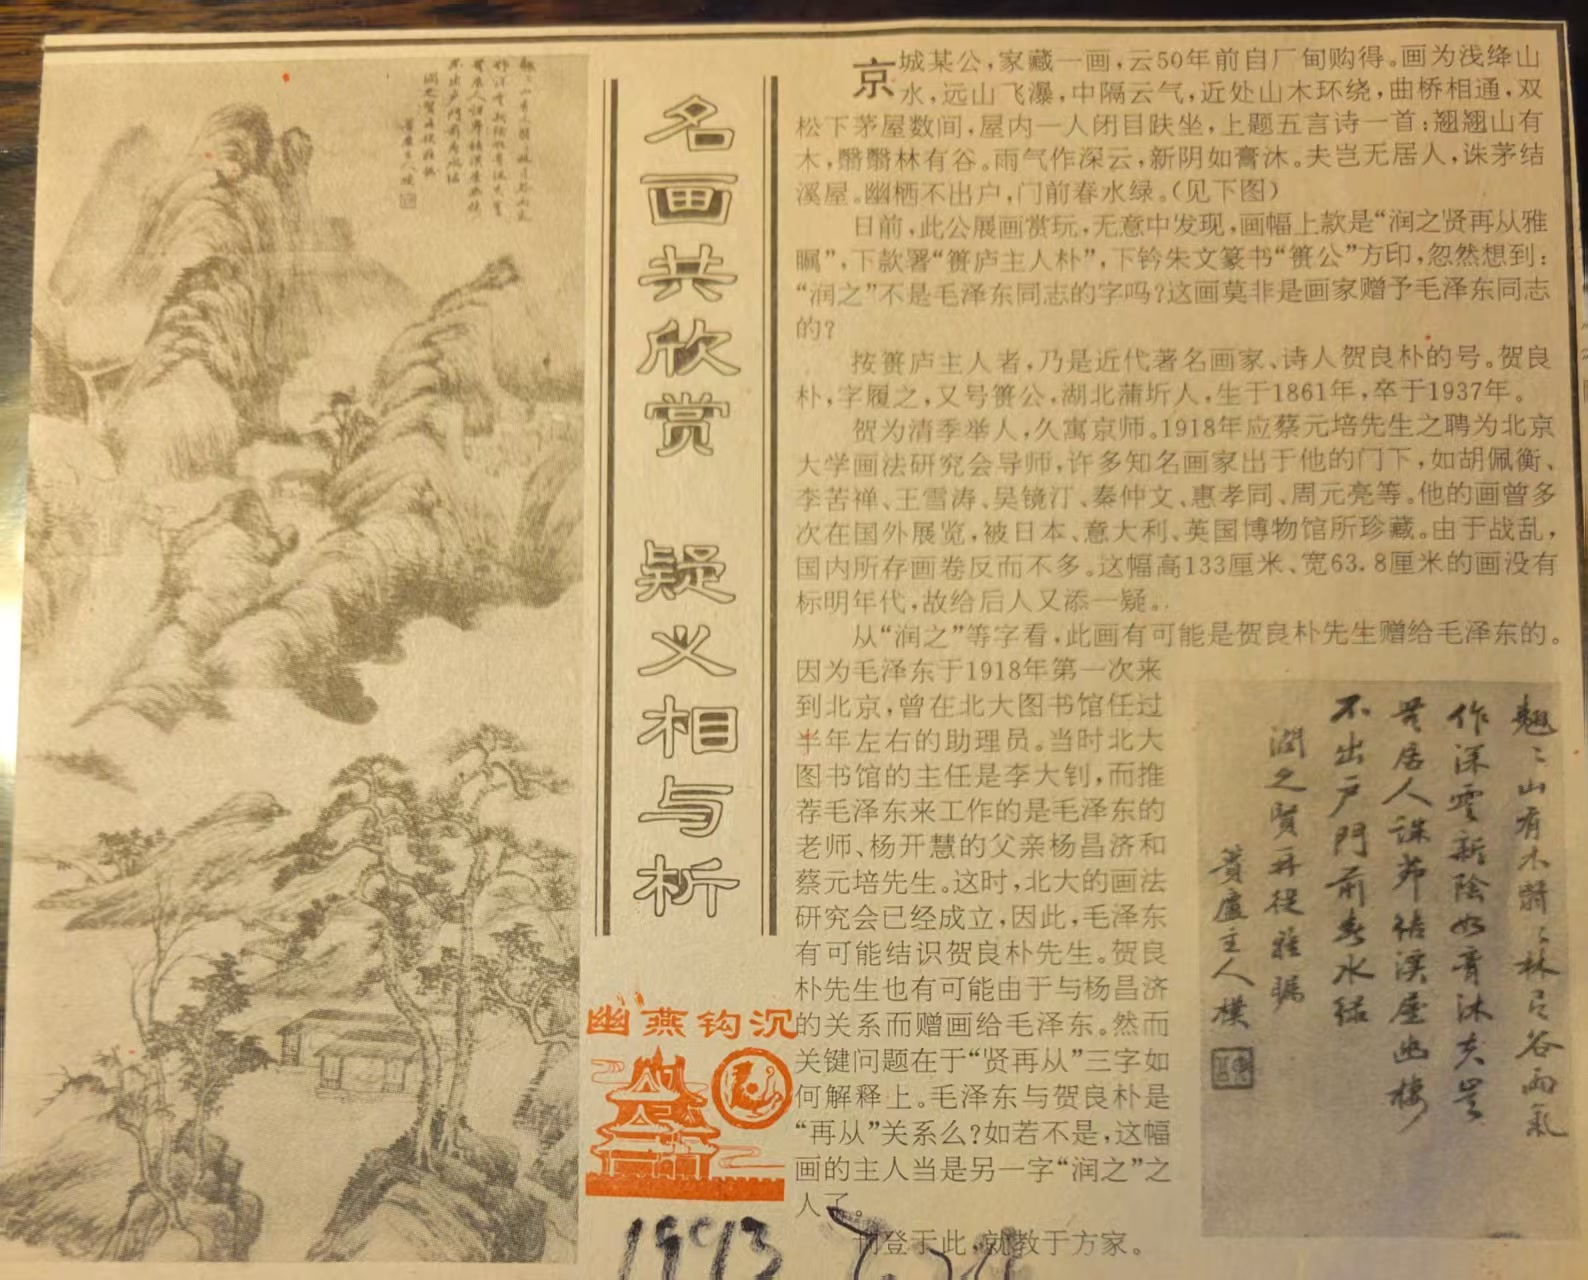 名画共欣赏 疑义相与析
京城某公,家藏一画,云50年前自厂甸购得。画为浅绛山
水,远山飞瀑,中隔云气,近处山木环绕,曲桥相通,双
松下茅屋数间,屋内一人闭目趺坐,上题五言诗一首:翘翘山有
木,翳翳林有谷。雨气作深云,新阴如膏沐。夫岂无居人,诛茅结
溪屋。幽栖不出户,门前春水绿。(见下图)
日前,此公展画赏玩,无意中发现,画幅上款是“润之贤再从雅
瞩”,下款署“篑庐主人朴”,下钤朱文篆书“篑公”方印,忽然想到:
“润之”不是毛泽东同志的字吗?这画莫非是画家赠予毛泽东同志
的?
按篑庐主人者,乃是近代著名画家、诗人贺良朴的号。贺良
朴,字履之,又号篑公,湖北蒲圻人,生于1861年,卒于1937年。
贺为清季举人,久寓京师。1918年应蔡元培先生之聘为北京
大学画法研究会导师,许多知名画家出于他的门下,如胡佩衡、
李苦禅、王雪涛、吴镜汀、秦仲文、惠孝同、周元亮等。他的画曾多
次在国外展览,被日本、意大利、英国博物馆所珍藏。由于战乱,
国内所存画卷反而不多。这幅高133厘米、宽63.8厘米的画没有
标明年代,故给后人又添一疑。
从“润之”等字看,此画有可能是贺良朴先生赠给毛泽东的。
因为毛泽东于1918年第一次来
到北京,曾在北大图书馆任过
半年左右的助理员。当时北大
图书馆的主任是李大钊,而推
荐毛泽东来工作的是毛泽东的
老师、杨开慧的父亲杨昌济和
蔡元培先生。这时,北大的画法
研究会已经成立,因此,毛泽东
有可能结识贺良朴先生。贺良
朴先生也有可能由于与杨昌济
的关系而赠画给毛泽东。然而
关键问题在于“贤再从”三字如
何解释上。毛泽东与贺良朴是
“再从”关系么?如若不是,这幅
画的主人当是另一字“润之”之
人了。
刊登于此,就教于方家。
翘〻山有木翳〻林有谷雨氣
作深雲新陰如膏沐夫豈
無居人誅茅結溪屋幽棲
不出戶門前春水綠
潤之賢再從雅矚
簣廬主人樸
幽燕钩沉
1993